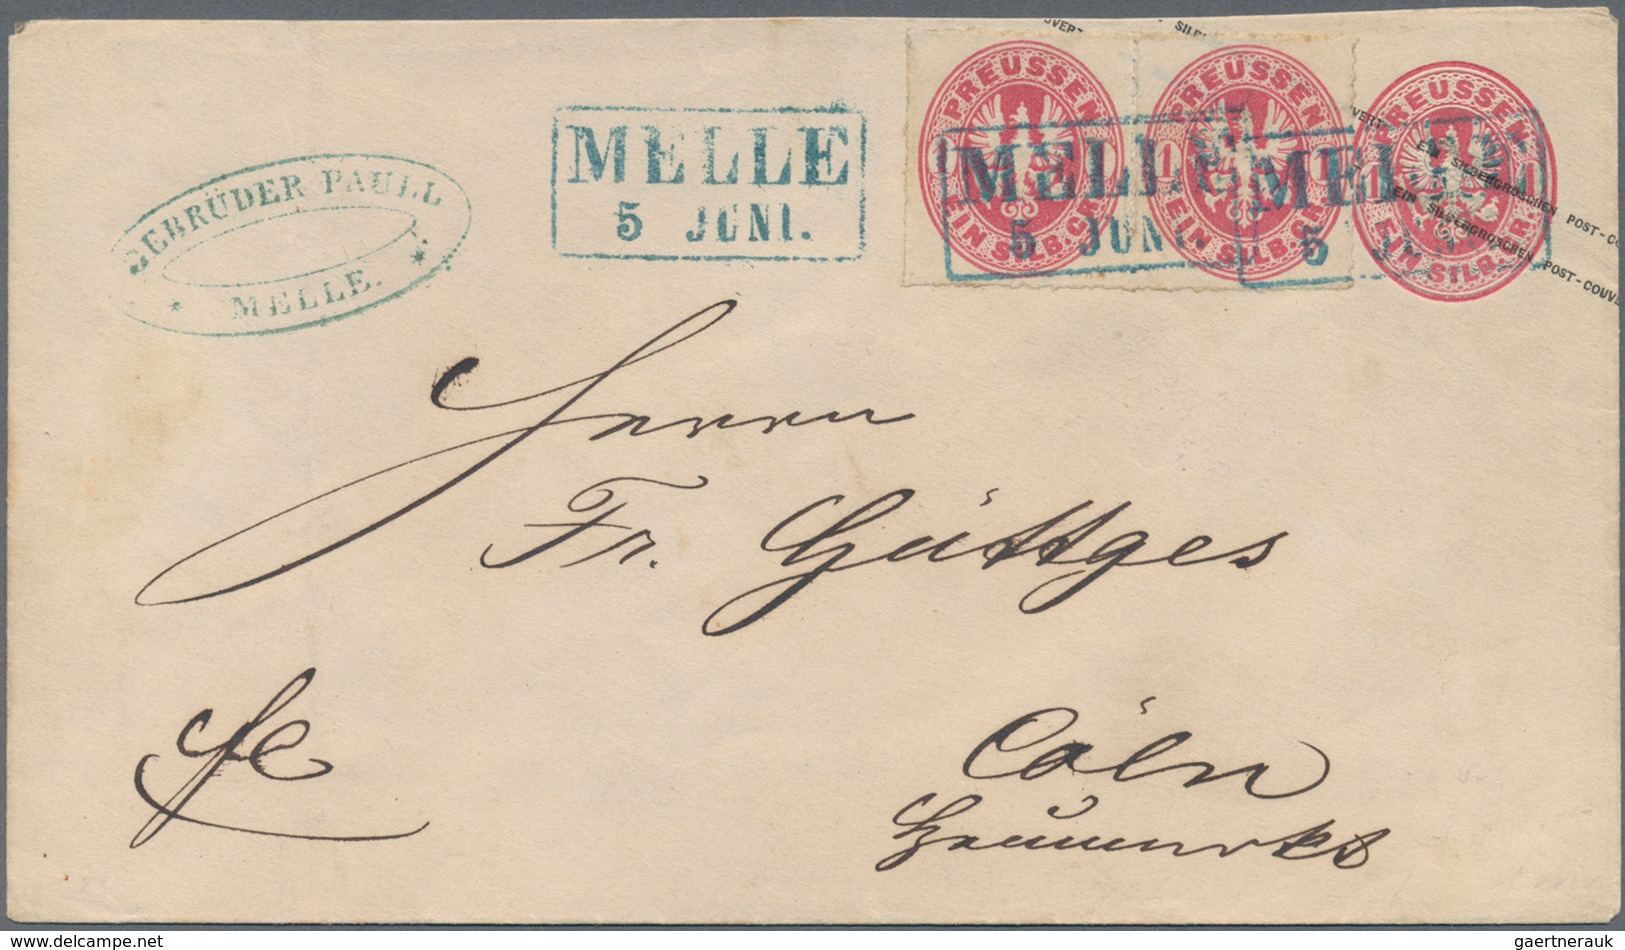 GEBRÜDER PAULL
MELLE.
MELLE
5 JUNI.
PREUSSEN
1 1
EIN SILB.GR.
PREUSSEN
1 1
EIN SILB.GR.
PREUSSEN
1 1
EIN SILB.GR.
MELLE
5 JUNI.
MEL
5
VERT
EIN SILBERGROSCHEN POST-CO
EIN SILBERGROSCHEN POST-COUVE
Herrn
Fr. Güttges
Cöln
Heumarkt
gaertnerauk